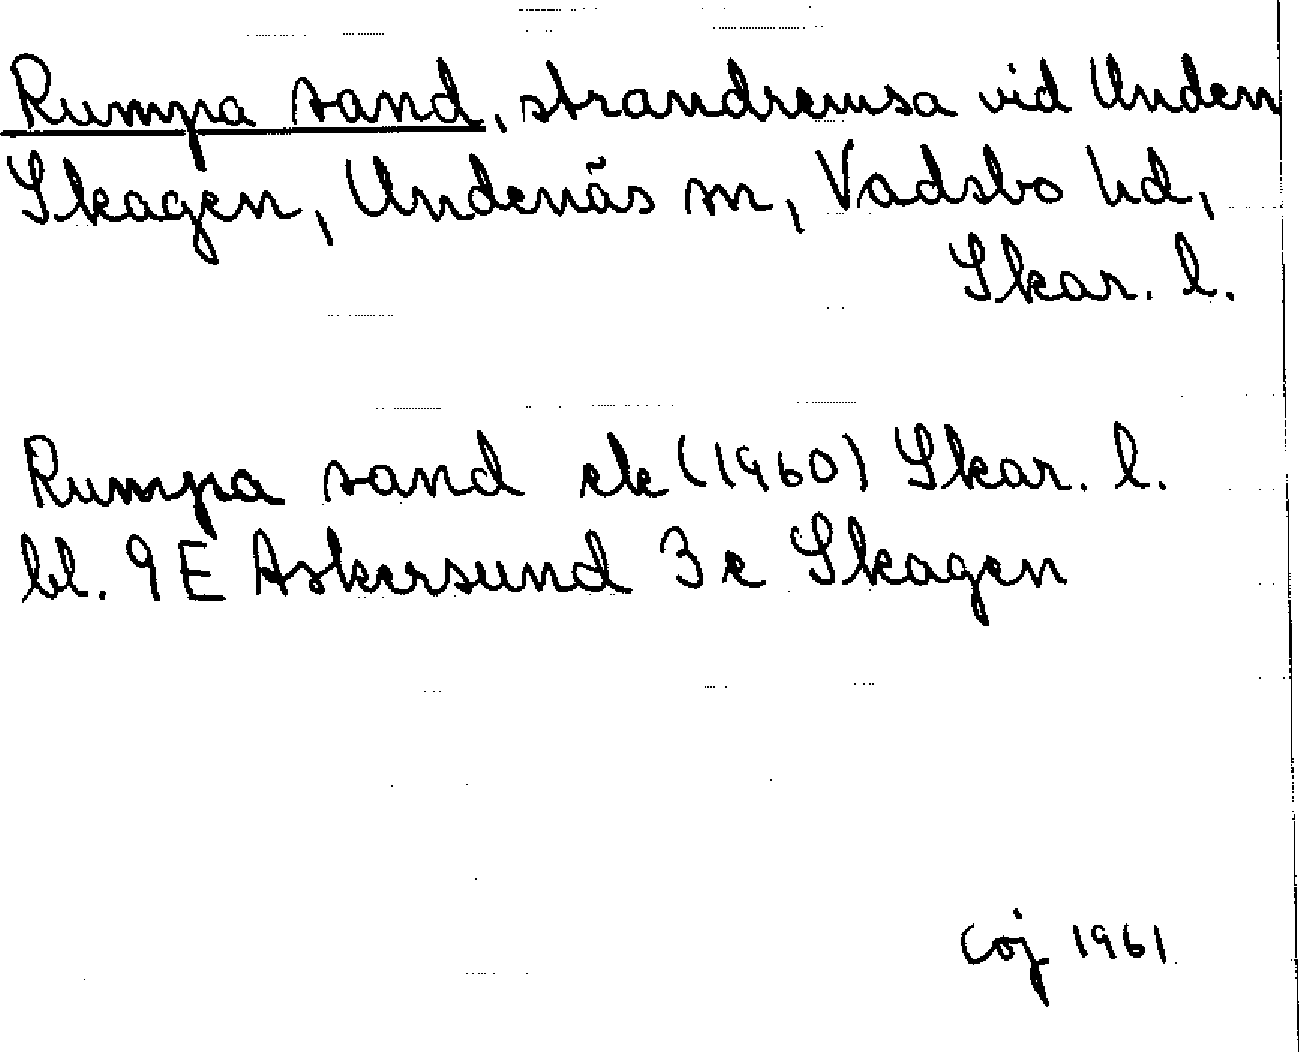 Rumpa sand, strandremsa vid Unden
Skagen, Undenäs sn, Vadsbo hd,
Skar. l.
Rumpa sand ek (1960) Skar. l.
bl. 9 E Askersund 3 e Skagen
Coj 1961